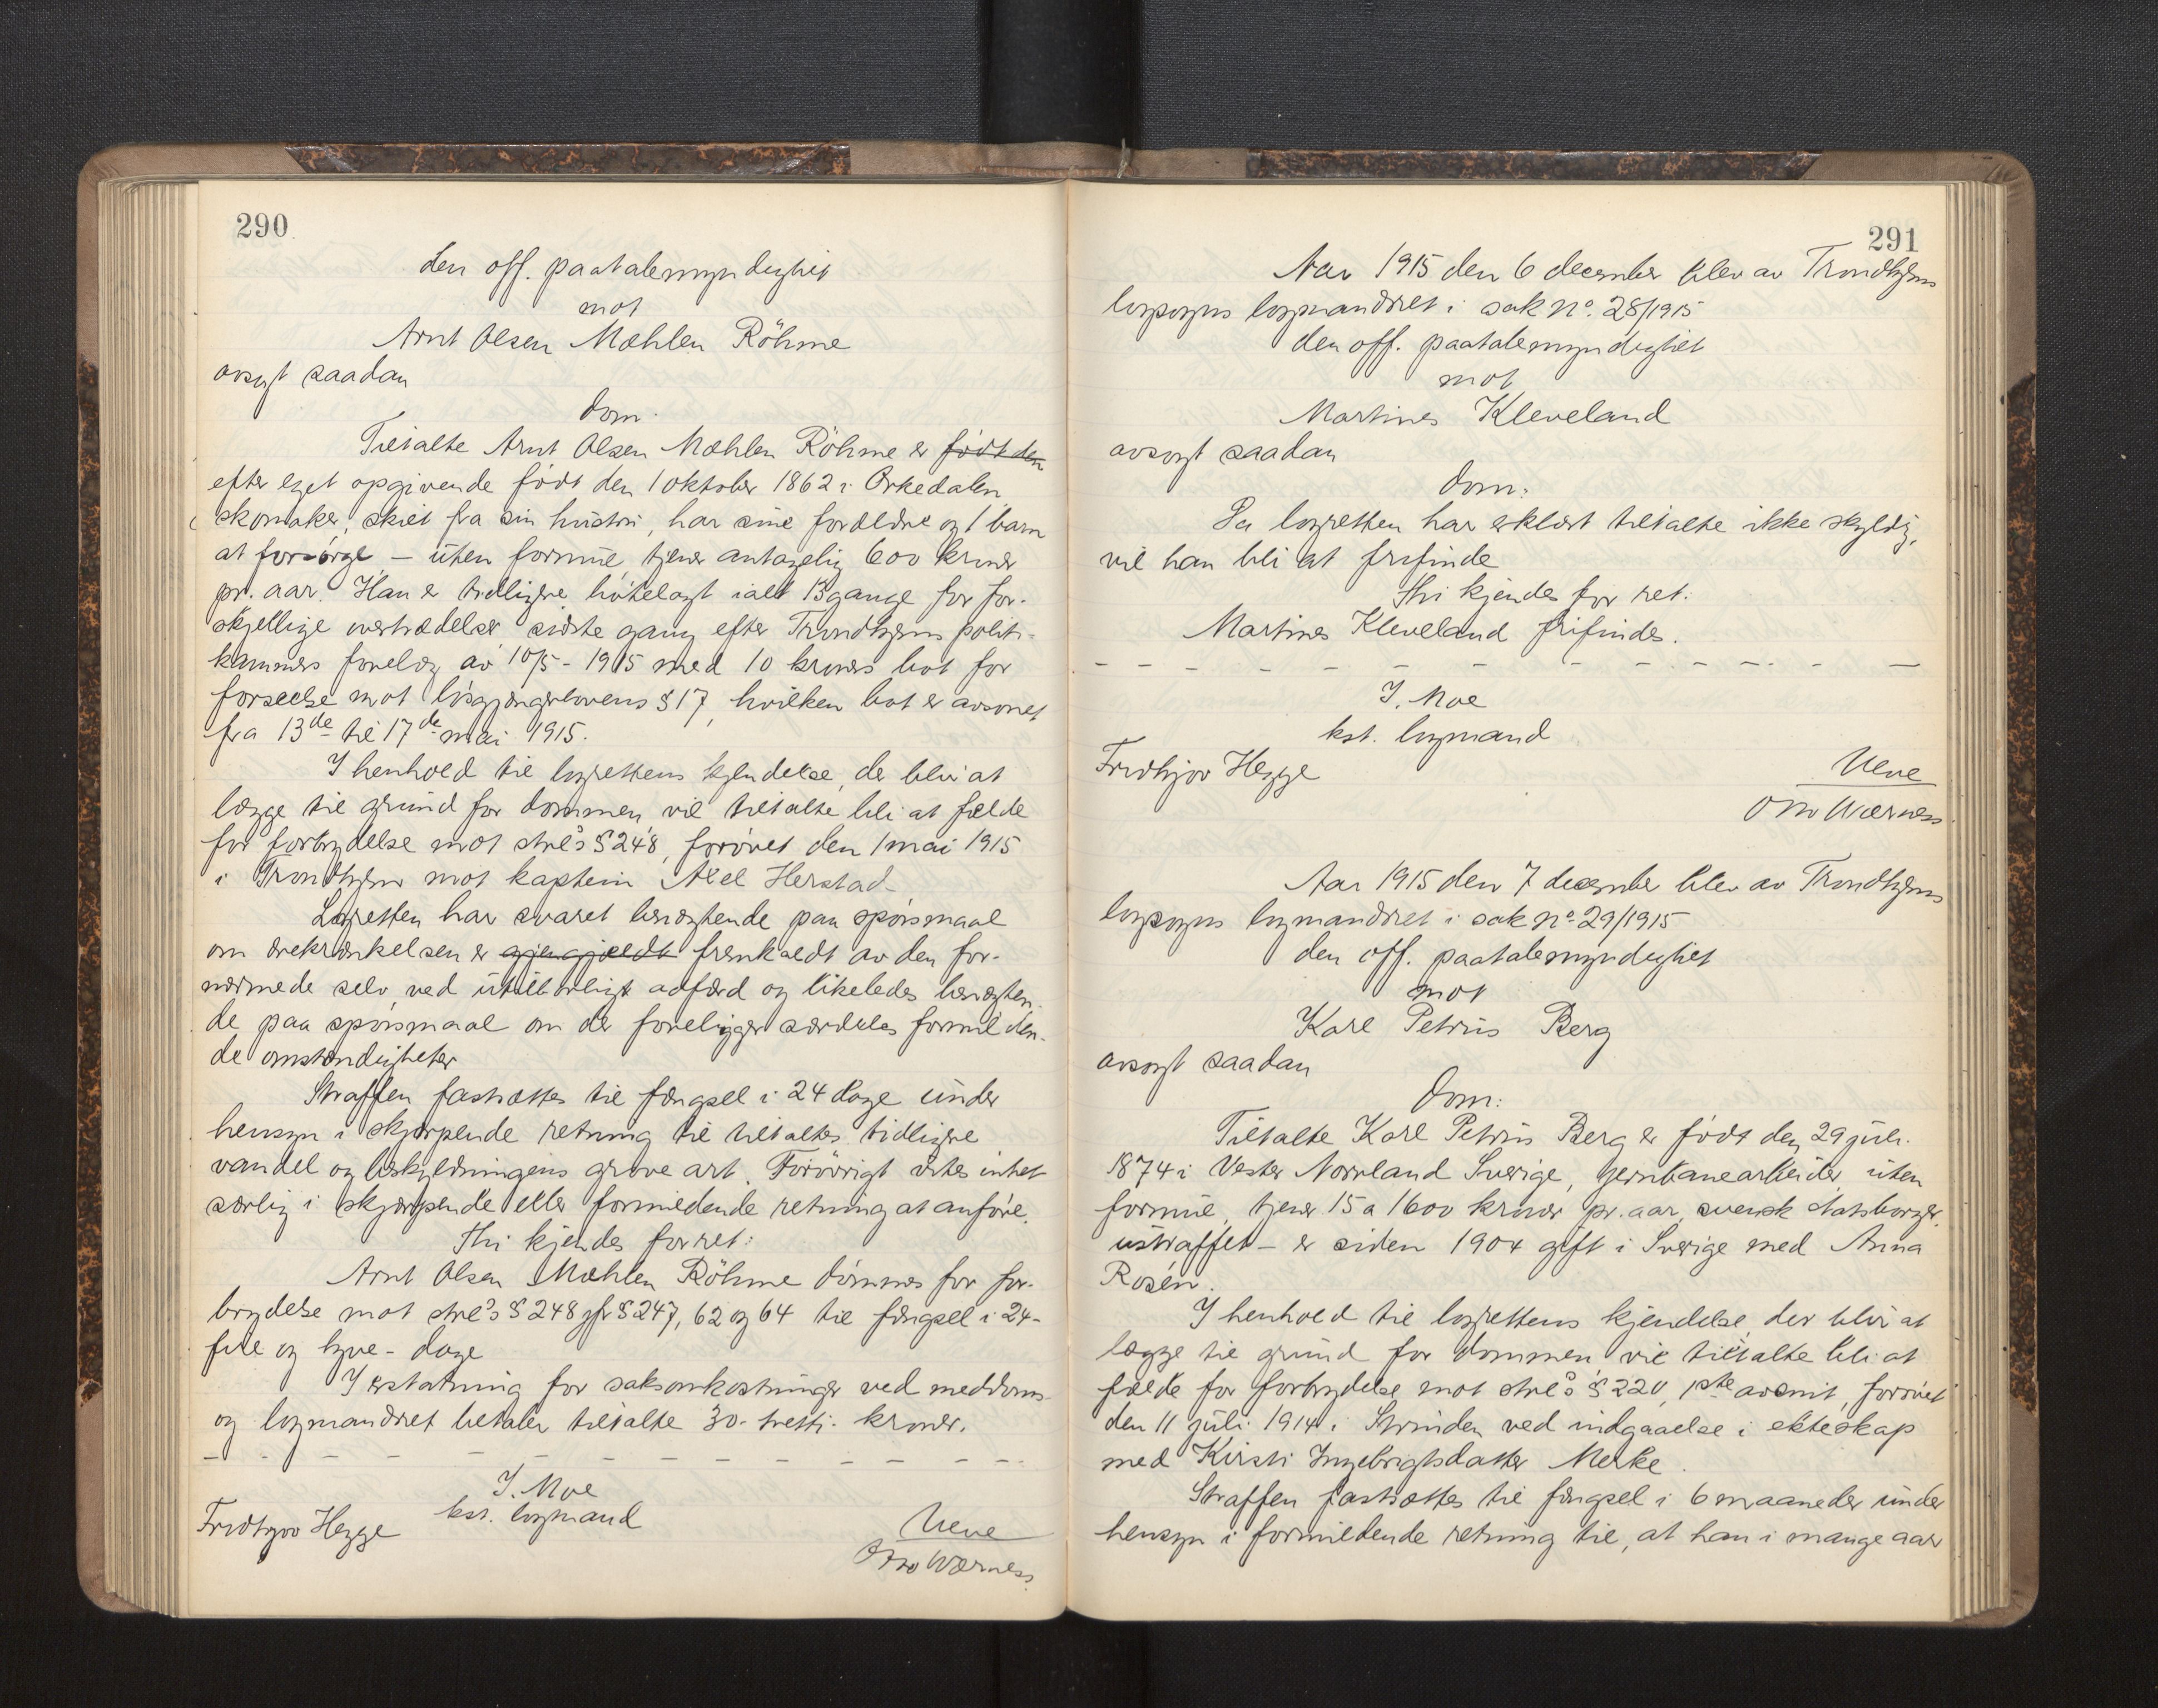 290
den off. paatalemyndighet
mot
Arnt Olsen Mæhlen Röhme
avsagt saadan
dom.
Tiltalte Arnt Olsen Mæhlen Röhme er födt den
efter eget opgivende födt den 1 oktober 1862 i Orkedalen
skomaker, skilt fra sin hustru, har sine forældre og 1 barn
at forsörge – uten formue, tjener antagelig 600 kroner
pr. aar. Han er tidligere bötelagt ialt 13 gange for for-
skjellige overtrædelser sidste gang efter Trondhjems politi-
kammers forelæg av 10/5 - 1915 med 10 kroners bot for
forseelse mot lösgjængerlovens § 17, hvilken bot er avsonet
fra 13de til 17de mai 1915.
I henhold til lagrettens kjendelse, der blir at
lægge til grund for dommen vil tiltalte bli at fælde
for forbrydelse mot strl's § 248, forövet den 1 mai 1915
i Trondhjem mot kaptein Axel Herstad.
Lagretten har svaret benægtende paa spörsmaal
om ærekrænkelsen er gjengjældt fremkaldt av den for-
nærmede selv ved utilbörligt adfærd og likeledes benægten-
de paa spörsmaal om der foreligger særdeles formilden-
de omstændigheter
Straffen fastsættes til fængsel i 24 dage under
hensyn i skjærpende retning til tiltaltes tidligere
vandel og beskyldningens grove art. Forövrigt vites intet
særlig i skjærpende eller formildende retning at anföre.
Thi kjendes for ret:
Arnt Olsen Mæhlen Röhme dömmes for for-
brydelse mot strl's § 248 jfr § 247, 62 og 64 til fængsel i 24-
fire og tyve - dage
I erstatning for saksomkostninger ved meddoms-
og lagmandsret betaler tiltalte 30- tretti- kroner.
– – – – – – – – – – – – –
I. Moe
kst. lagmand
Fridtjov Hegge
Ueve
Otto Wærness
291
Aar 1915 den 6 december blev av Trondhjems
lagsogns lagmandsret i sak no. 28/1915
den off. paatalemyndighet
mot
Martines Kleveland
avsagt saadan
dom:
Da lagretten har erklært tiltalte ikke skyldig,
vil han bli at frifinde
Thi kjendes for ret:
Martines Kleveland frifindes.
– – – – – – – – – – – – –
I. Moe
kst. lagmand
Fridtjov Hegge
Ueve
Otto Wærness
Aar 1915 den 7 december blev av Trondhjems
lagsogns lagmandsret i sak no. 29/1915
den off. paatalemyndighet
mot
Karl Petrus Berg
avsagt saadan
dom:
Tiltalte Karl Petrus Berg er födt den 29 juli
1874 i Vester Norrland Sverige, jernbanearbeider, uten
formue, tjener 15 a 1600 kroner pr. aar, svensk statsborger,
ustraffet – er siden 1904 gift i Sverige med Anna
Rosén.
I henhold til lagrettens kjendelse, der blir at
lægge til grund for dommen vil tiltalte bli at
fælde for forbrydelse mot strl's § 220, 1ste avsnit, forövet
den 11 juli 1914 i Strinden ved indgaaelse i ekteskap
med Kirsti Ingebrigtsdatter Merke.
Straffen fastsættes til fængsel i 6 maaneder under
hensyn i formildende retning til, at han i mange aar